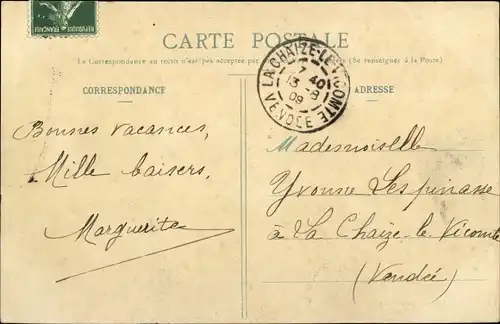 CARTE POSTALE
La Correspondance au recto n'est pas acceptée par (Se renseigner à la Poste)
CORRESPONDANCE
ADRESSE
LA CHAIZE-LE-VICOMTE
7 40
13 -8
09
VENDEE
Bonnes vacances,
Mille baisers,
Marguerite
Mademoiselle
Yvonne Lespinasse
à La Chaize-le-Vicomte
(Vendée)